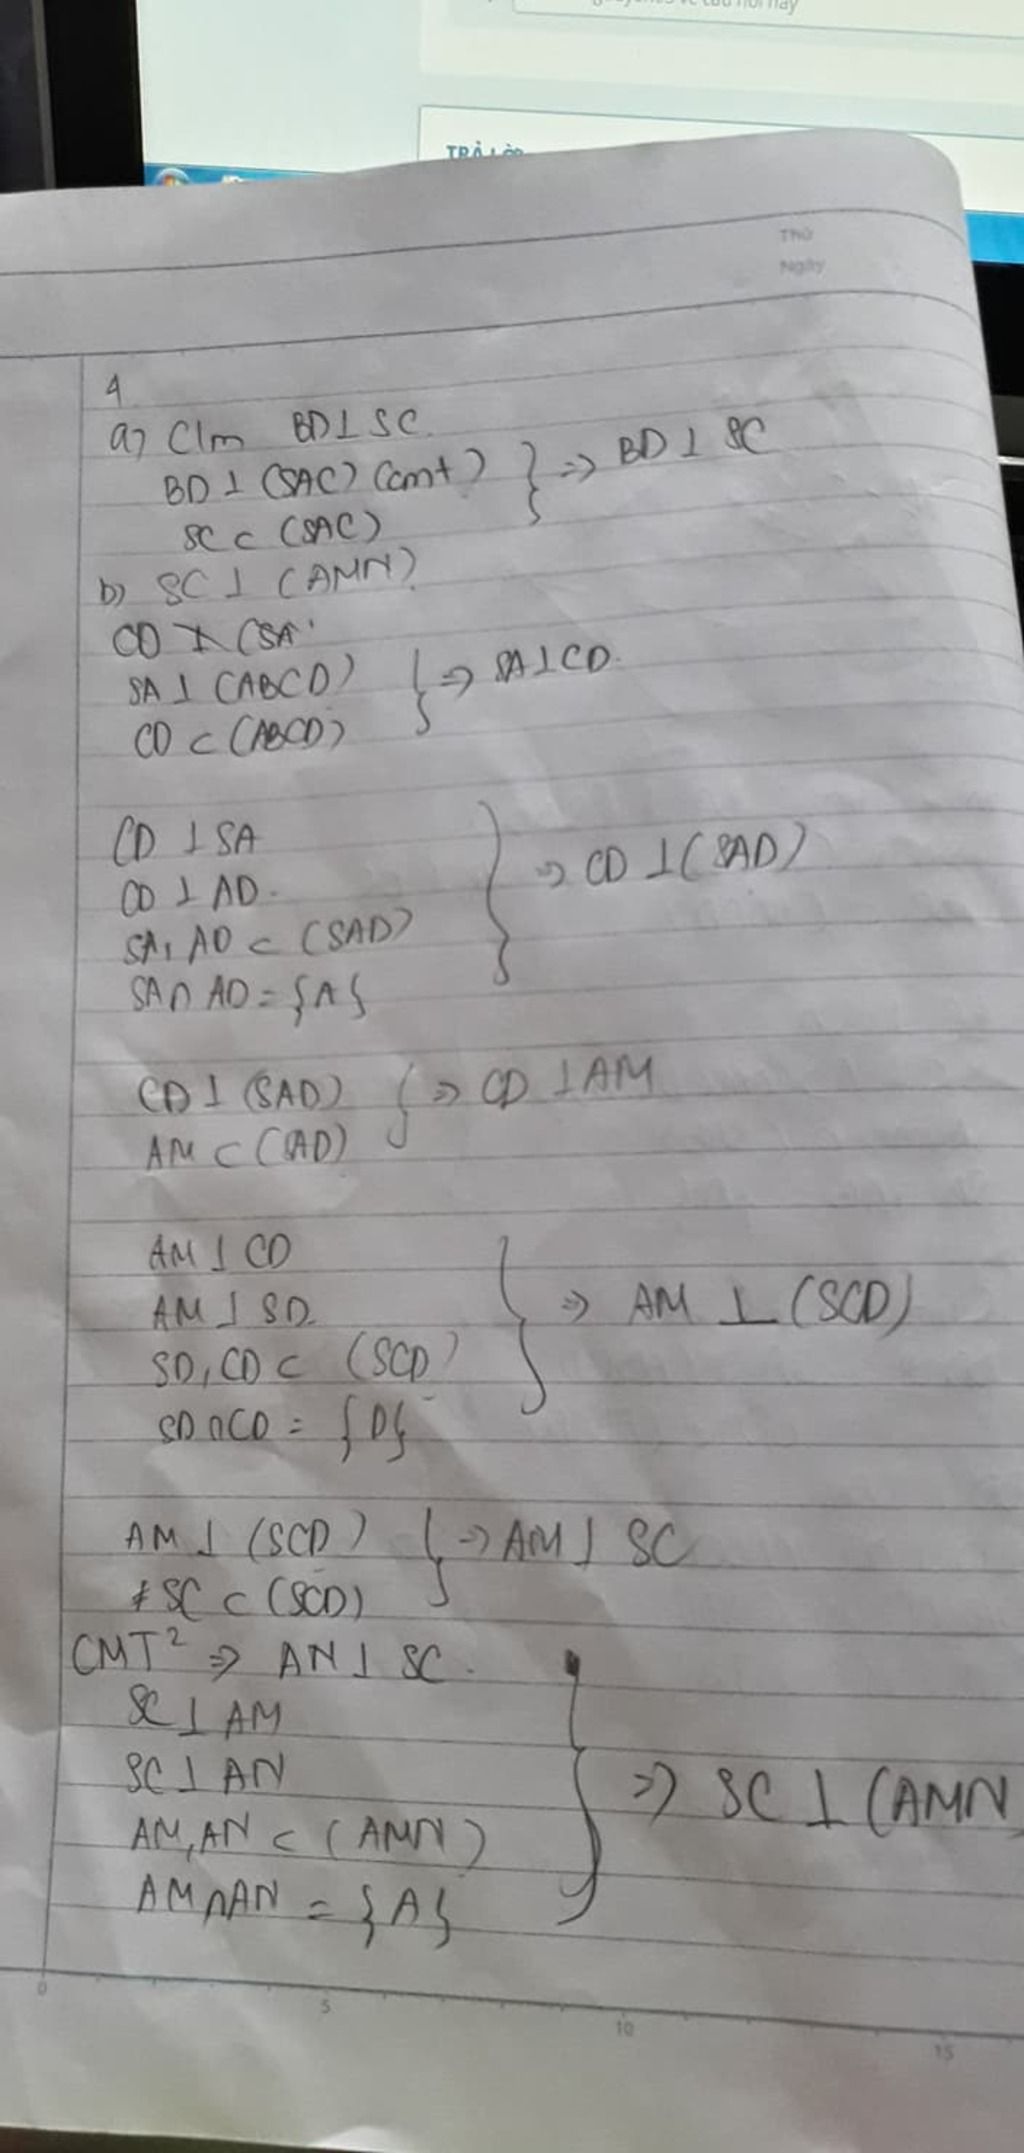 TRẢ LỜ
Thứ
Ngày
4
a) C/m BD⊥SC
BD⊥(SAC)(cmt) } ⇒ BD⊥SC
SC⊂(SAC)
b) SC⊥(AMN)
CD ⊥ (SA
SA⊥(ABCD) } ⇒ SA⊥CD.
CD⊂(ABCD)
CD⊥SA
CD⊥AD. } ⇒ CD⊥(SAD)
SA, AD⊂(SAD)
SA∩AD={A}
CD⊥(SAD) } ⇒ CD⊥AM
AM⊂(AD)
AM⊥CD
AM⊥SD } ⇒ AM⊥(SCD)
SD, CD⊂(SCD)
SD∩CD={D}
AM⊥(SCD) } ⇒ AM⊥SC
SC⊂(SCD)
CMT² ⇒ AN⊥SC.
SC⊥AM
SC⊥AN } ⇒ SC⊥(AMN)
AM, AN⊂(AMN)
AM∩AN={A}
0 5 10 15